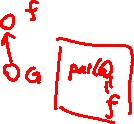 f
G
par(G)
f